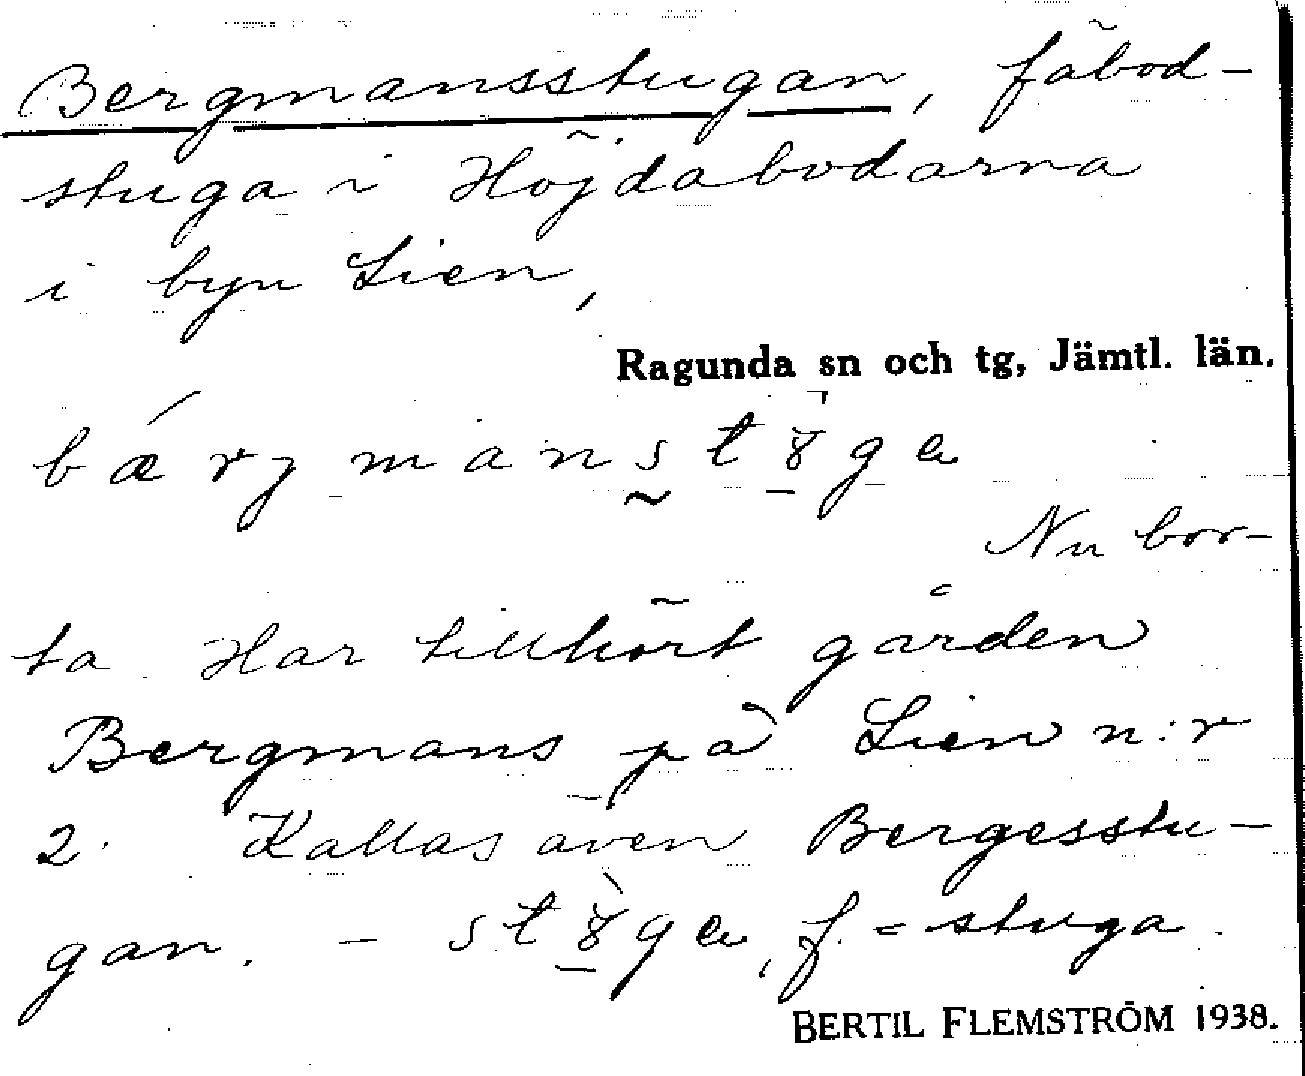 Bergmansstugan, fäbod-
stuga i Höjdabodarna
i byn Lien,
Ragunda sn och tg, Jämtl. län.
Nu bor-
ta Har tillhört gården
Bergmans på Lien n:r
2. Kallas även Bergesstu-
gan. - f. = stuga
BERTIL FLEMSTRÖM 1938.